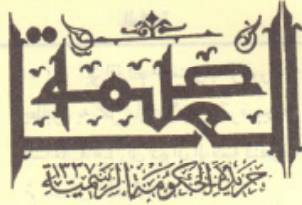 العاصمة
جريدة الحكومة الرسمية
١٣٣٧